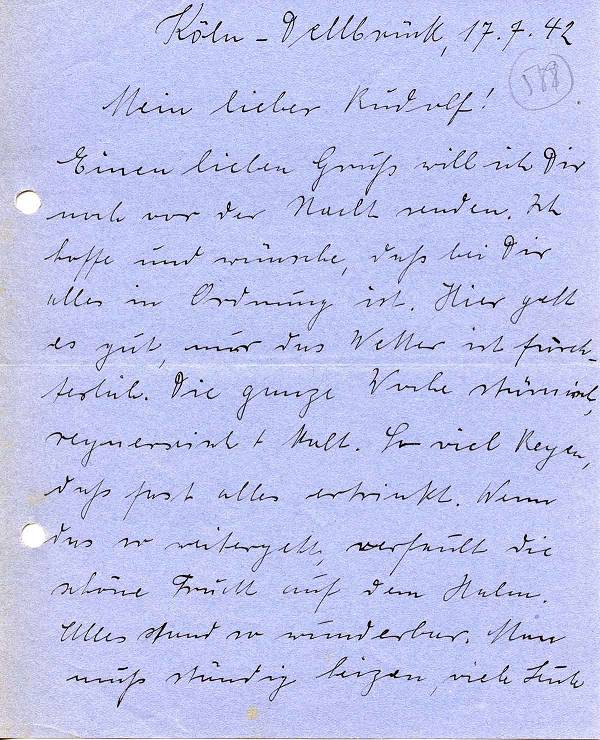 Köln-Dellbrück, 17.7.42
588
Mein lieber Rudolf!
Einen lieben Gruß will ich Dir
noch vor der Nacht senden. Ich
hoffe und wünsche, daß bei Dir
alles in Ordnung ist. Hier geht
es gut, nur das Wetter ist fürch-
terlich. Die ganze Woche stürmisch,
regnerisch + kalt. So viel Regen,
daß fast alles ertrinkt. Wenn
das so weitergeht, verfault die
schöne Frucht auf dem Halm.
Alles stand so wunderbar. Man
muß ständig heizen, viele